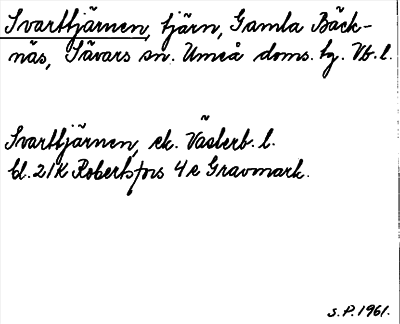 Svarttjärnen, tjärn, Gamla Bäck-
näs, Sävars sn. Umeå doms. tg. Vb. l.
Svarttjärnen, ek. Västerb. l.
bl. 21K Robertsfors 4e Gravmark.
S.P. 1961.